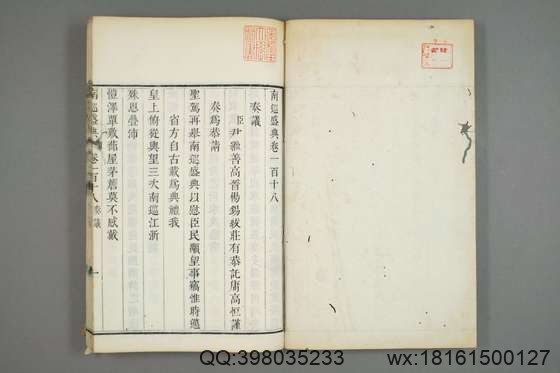 南巡盛典卷一百十八
奏議
臣尹繼善高晉楊錫紱莊有恭託庸高恒謹
奏爲恭請
聖駕再舉南巡盛典以慰臣民顒望事竊惟時巡
省方自古載爲典禮我
皇上俯從輿望三次南巡江浙
殊恩疊沛
愷澤覃敷蔀屋茅簷莫不感戴
南巡盛典 卷一百十八 奏議 一
QQ:398035233 wx:18161500127